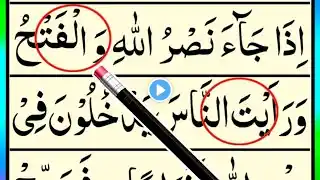 اِذَا جَآءَ نَصْرُ اللّٰهِ وَ الْفَتْحُ
وَ رَاَيْتَ النَّاسَ يَدْخُلُوْنَ فِىْ